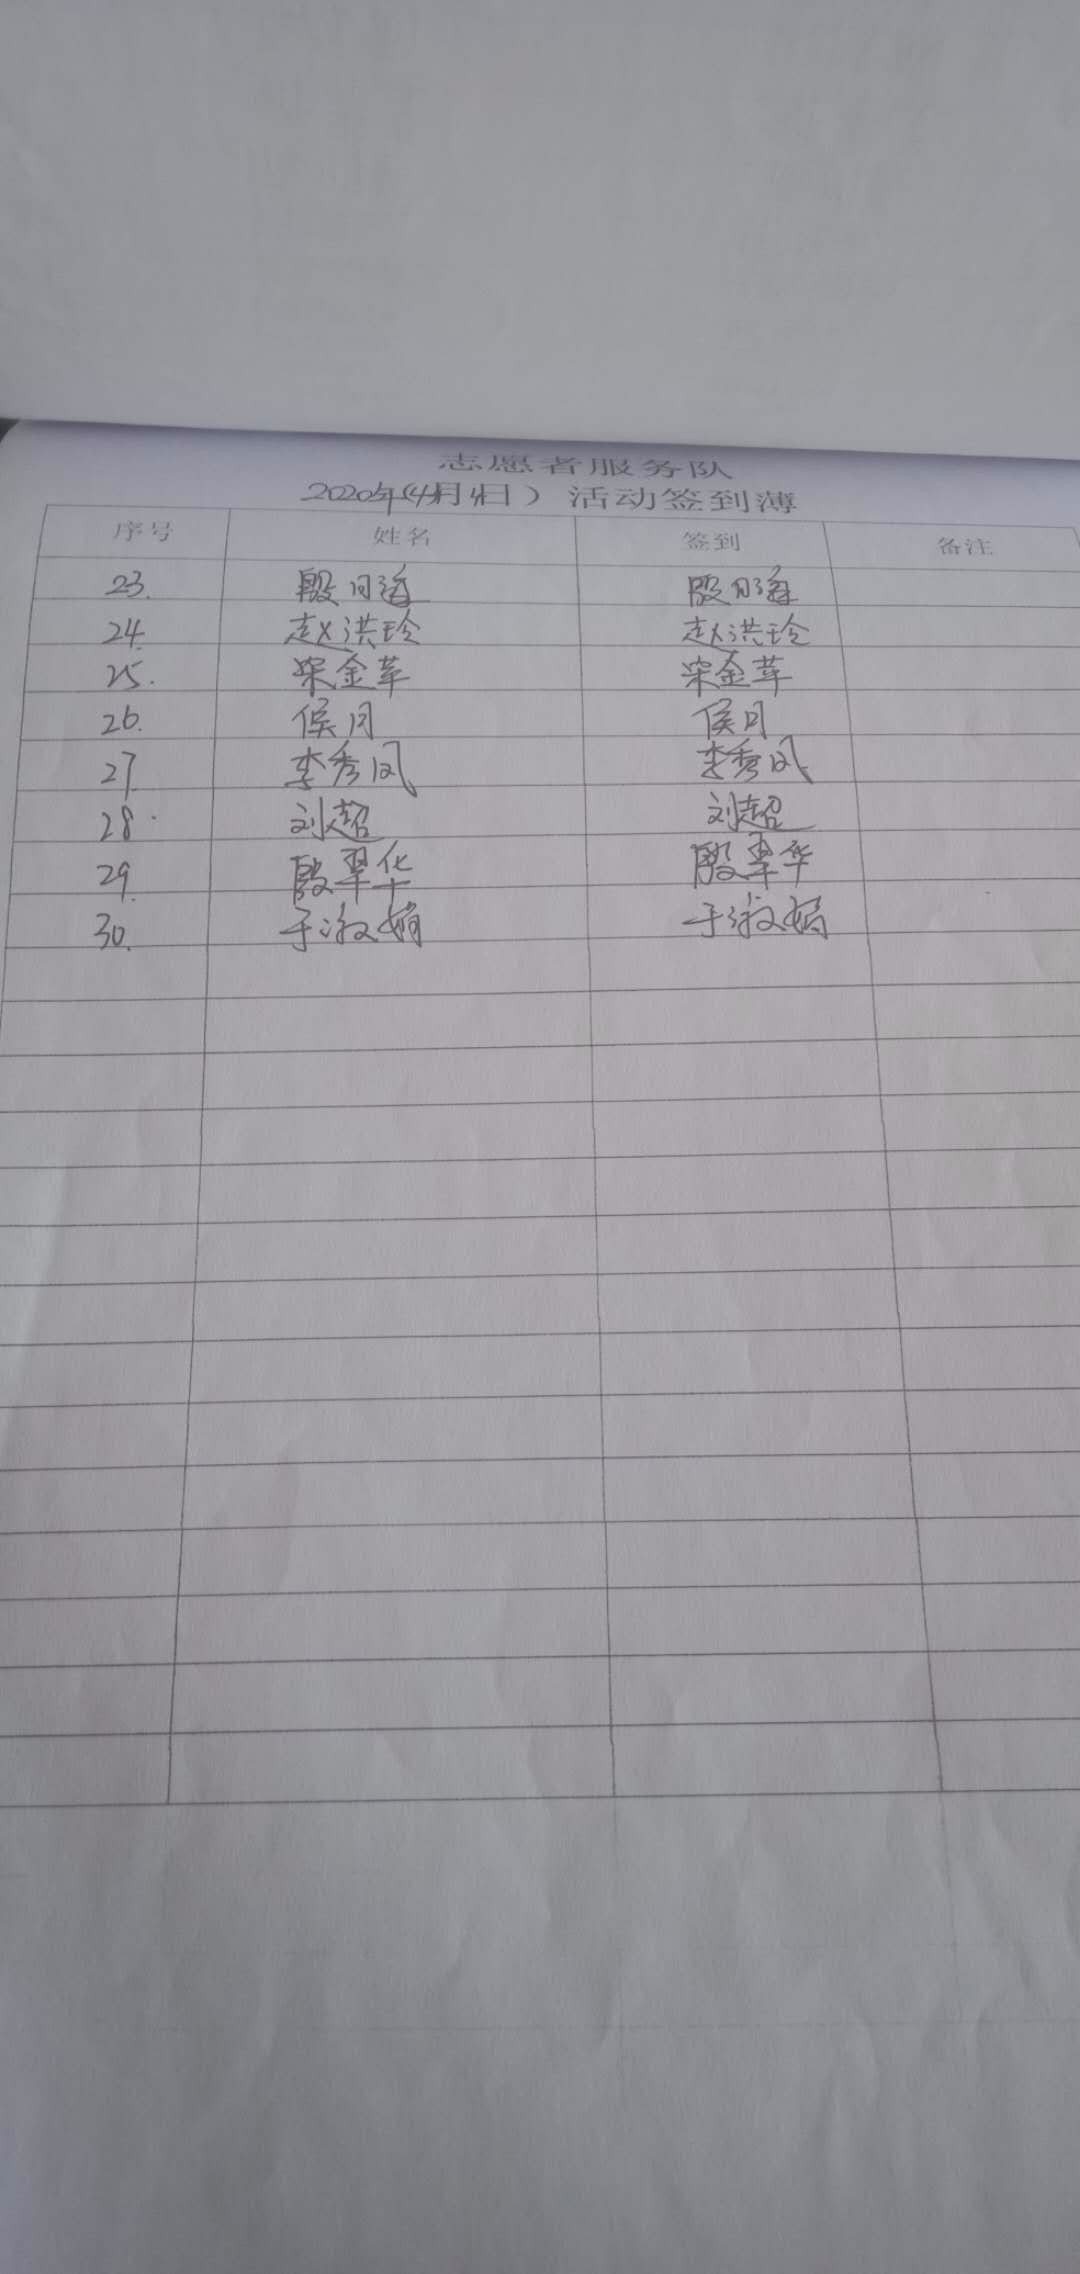 志愿者服务队
2020年(4月4日)活动签到薄
序号 姓名 签到 备注
23. 殷月海 殷月海
24. 赵洪玲 赵洪玲
25. 宋金苹 宋金苹
26. 侯月 侯月
27 李秀凤 李秀凤
28. 刘超 刘超
29. 殷翠华 殷翠华
30. 于淑娟 于淑娟